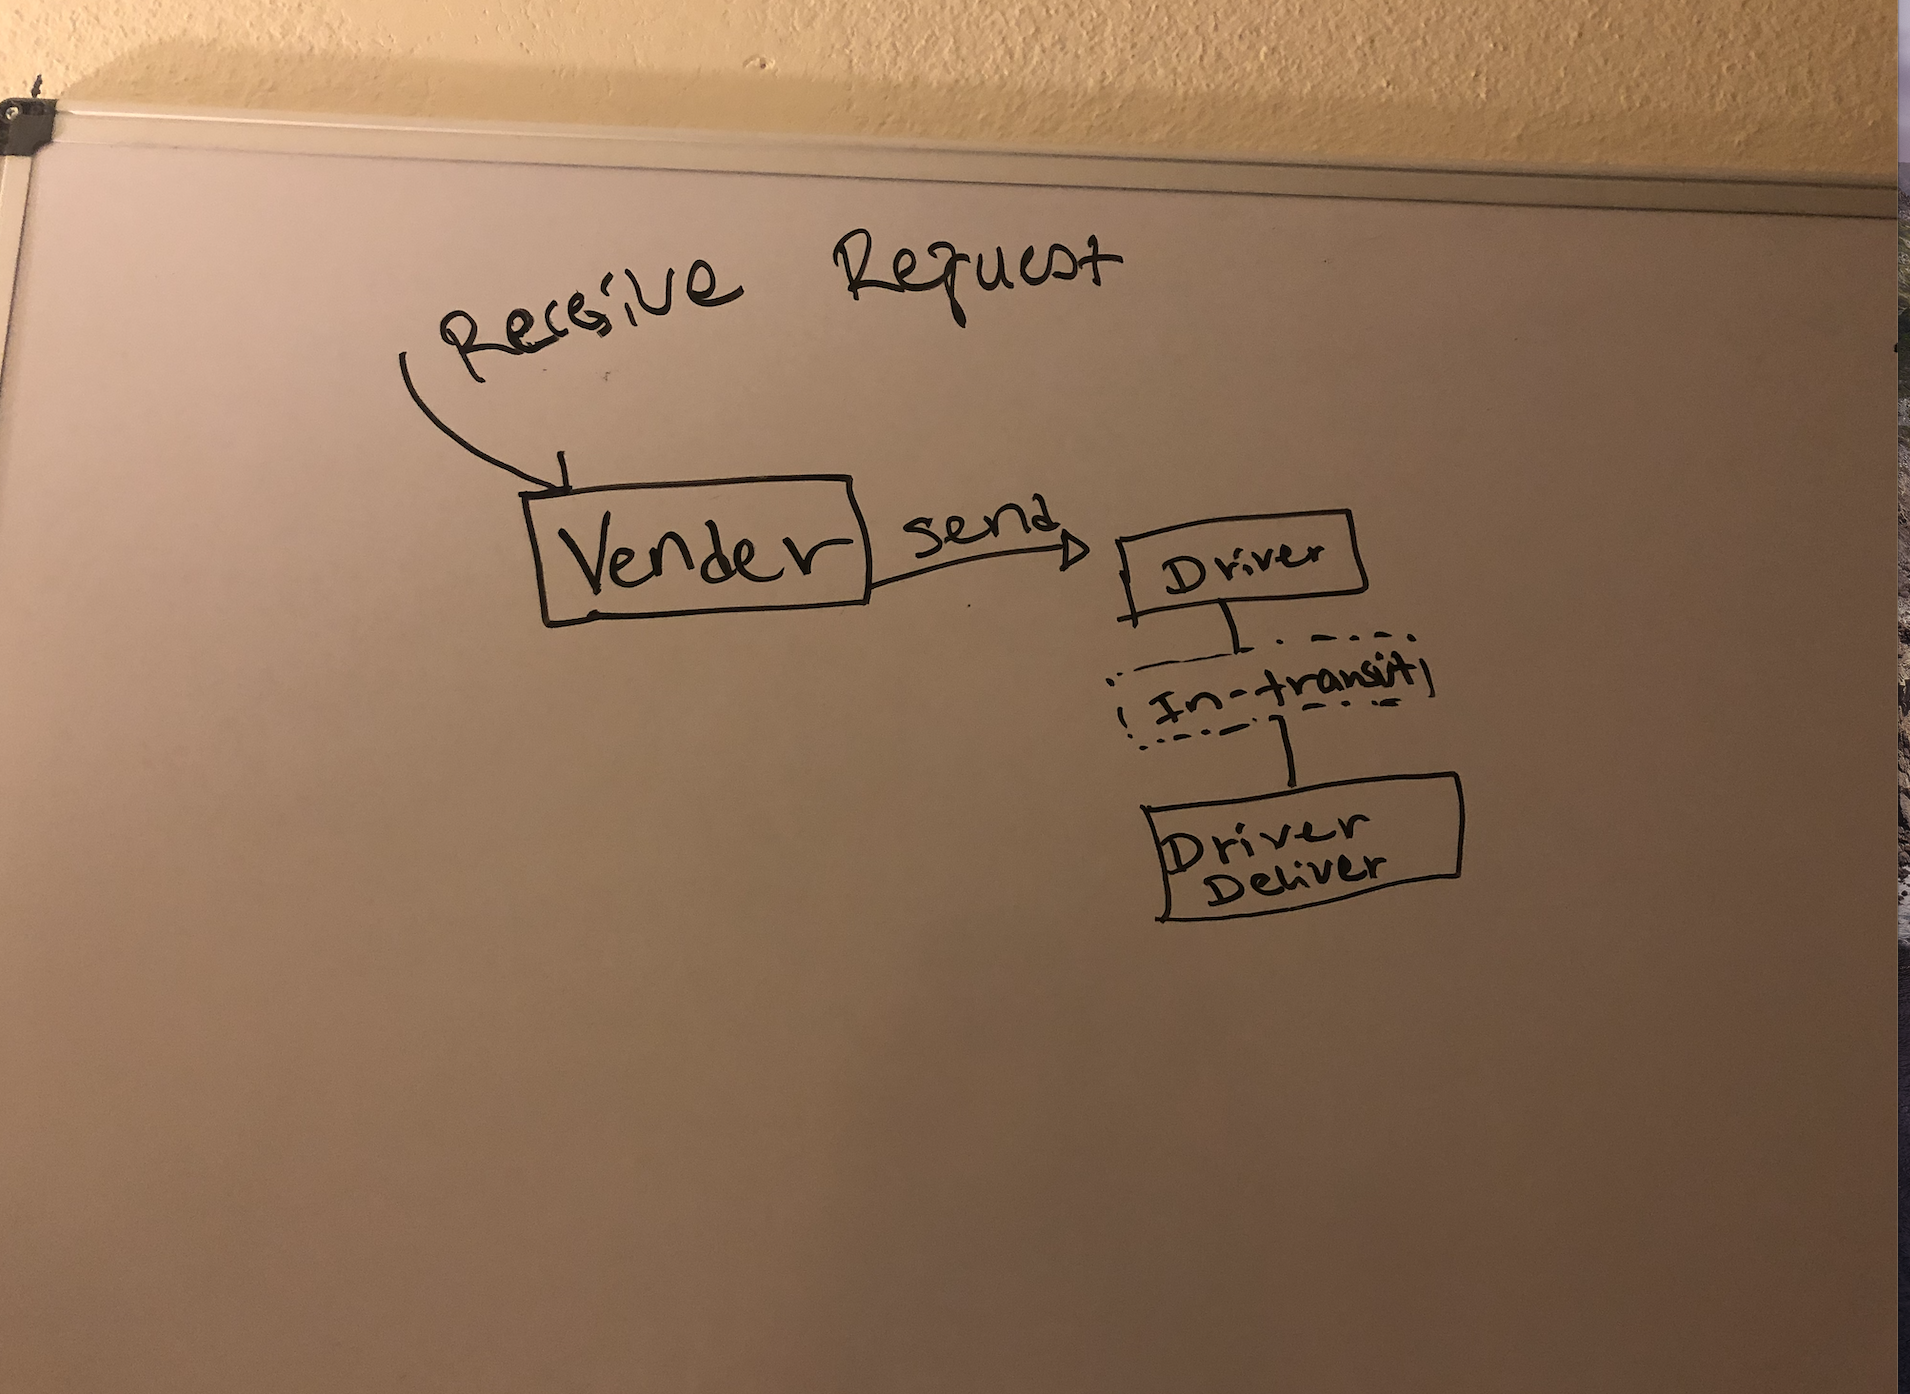 Receive Request
Vender
send
Driver
In-transit
Driver
Deliver